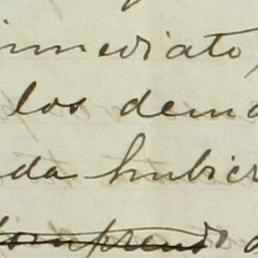 inmediato,
los dema
da hubier